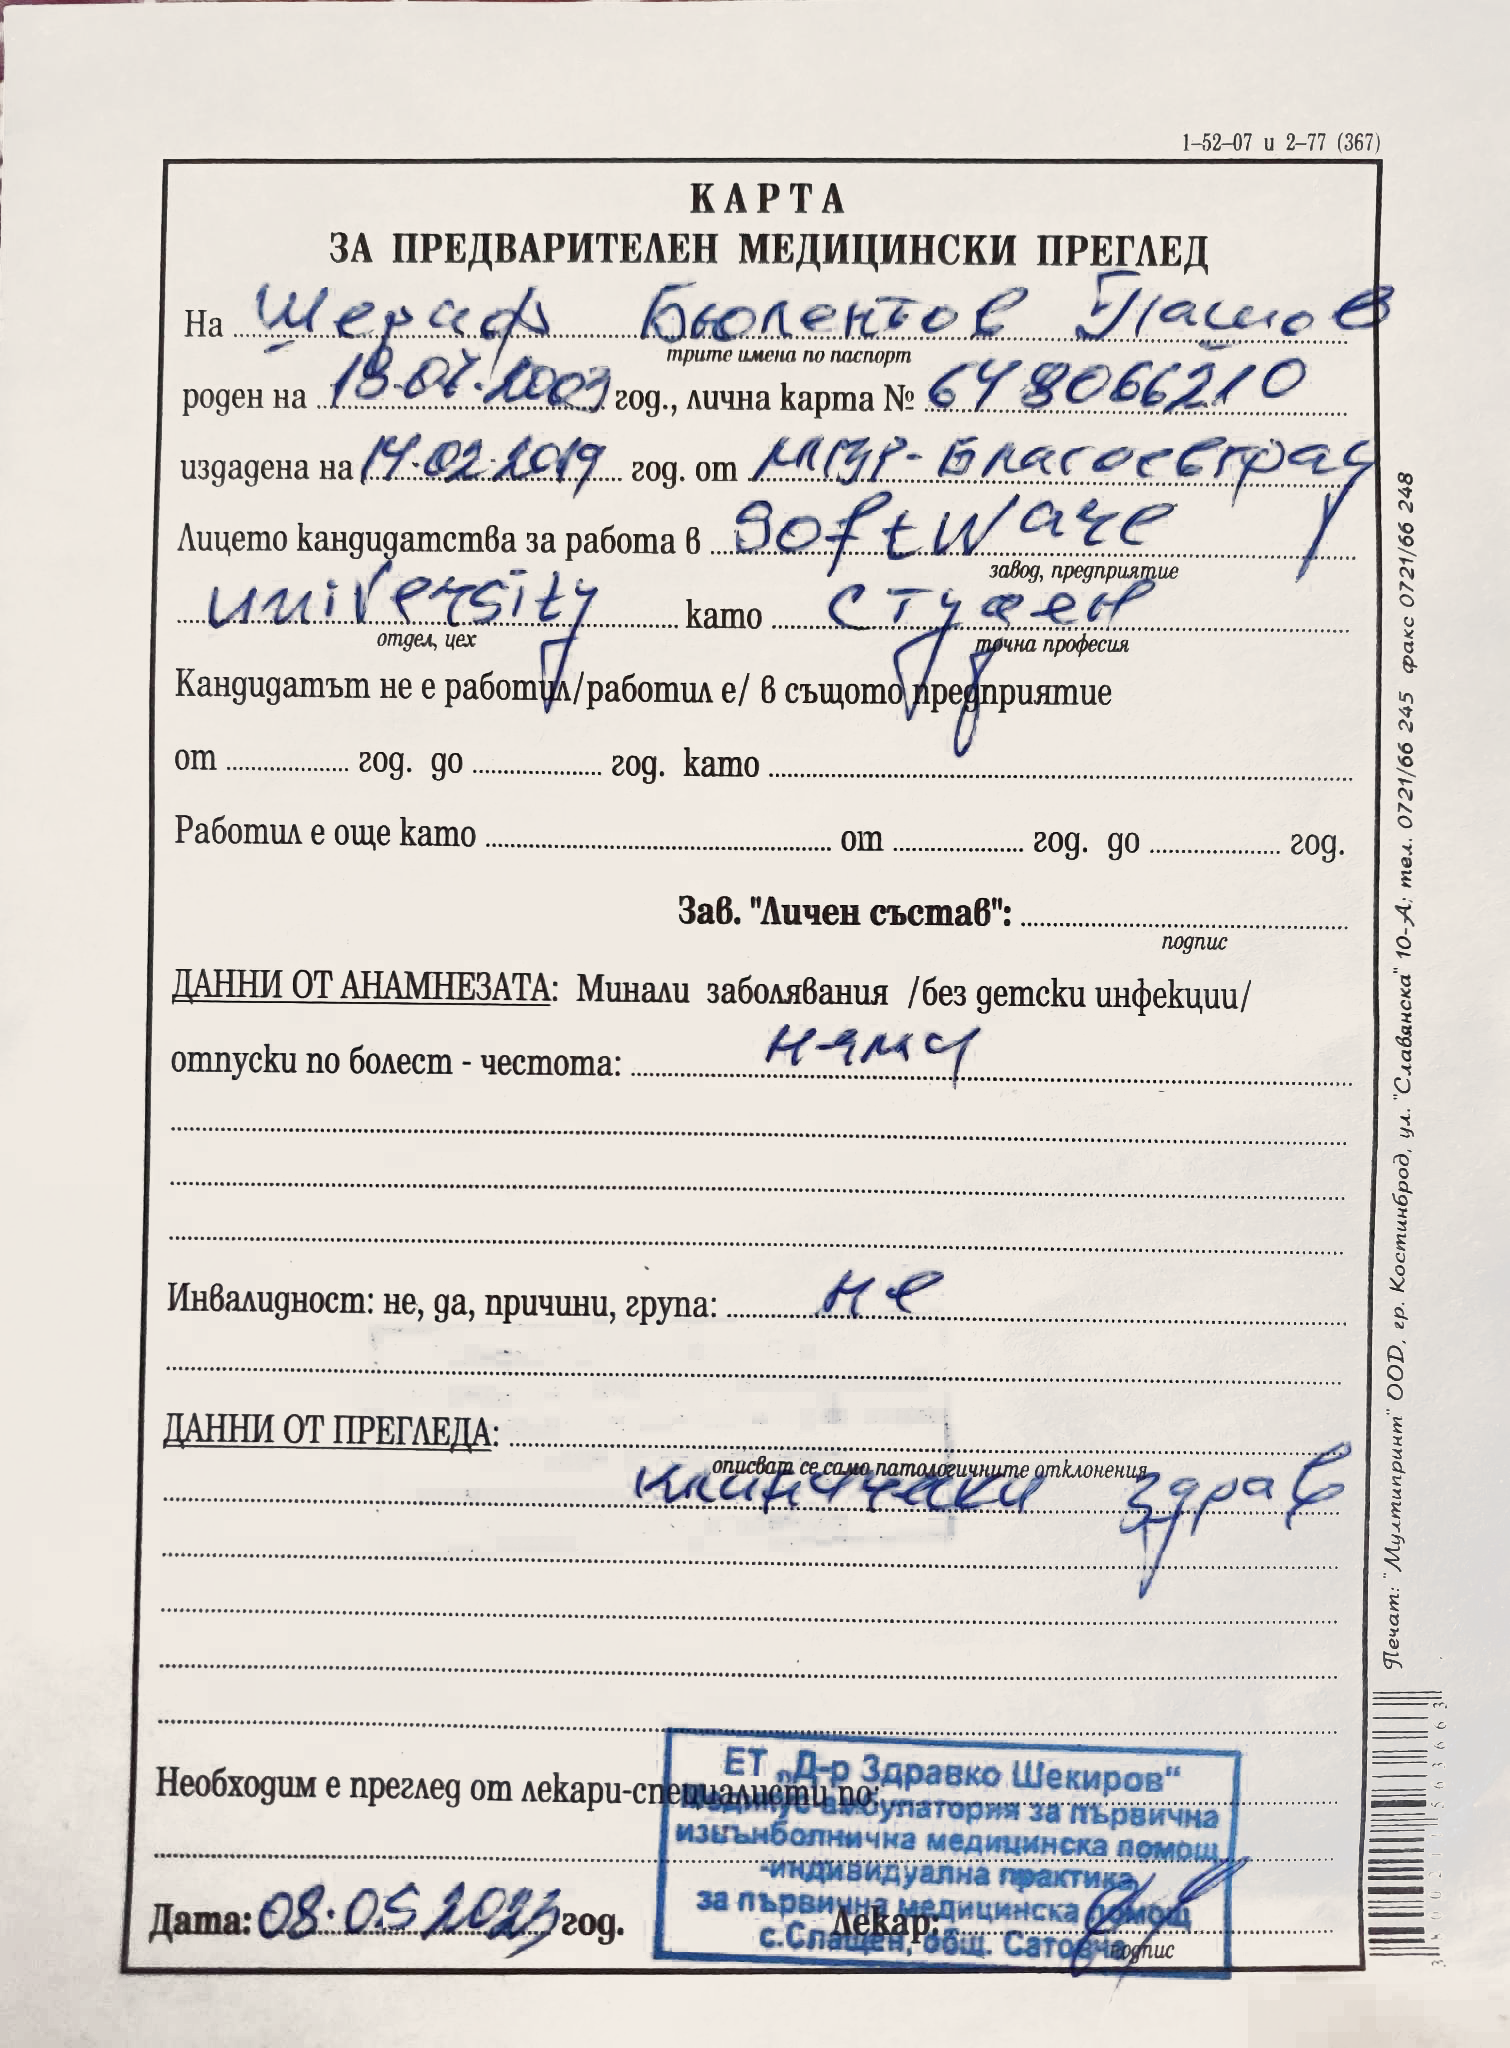 1–52–07 и 2–77 (367)
КАРТА
ЗА ПРЕДВАРИТЕЛЕН МЕДИЦИНСКИ ПРЕГЛЕД
На Шериф Бюлентов Пашов
трите имена по паспорт
роден на 18.07.2003 год., лична карта № 648066210
издадена на 14.02.2019 год. от МВР-Благоевград
Лицето кандидатства за работа в Software
завод, предприятие
university като студент
отдел, цех точна професия
Кандидатът не е работил/работил е/ в същото предприятие
от ........ год. до ........ год. като ........
Работил е още като ........ от ........ год. до ........ год.
Зав. "Личен състав": ........
подпис
ДАННИ ОТ АНАМНЕЗАТА: Минали заболявания /без детски инфекции/
отпуски по болест - честота: няма
Инвалидност: не, да, причини, група: не
ДАННИ ОТ ПРЕГЛЕДА:
описват се само патологичните отклонения
клинически здрав
Необходим е преглед от лекари-специалисти по:
ЕТ „Д-р Здравко Шекиров“
амбулатория за първична
извънболнична медицинска помощ
-индивидуална практика
за първична медицинска помощ
с.Слащен, общ. Сатовча
Дата: 08.05.2023 год. Лекар:
подпис
Печат: "Мултипринт" ООД, гр. Костинброд, ул. "Славянска" 10-А; тел. 0721/66 245 факс 0721/66 248